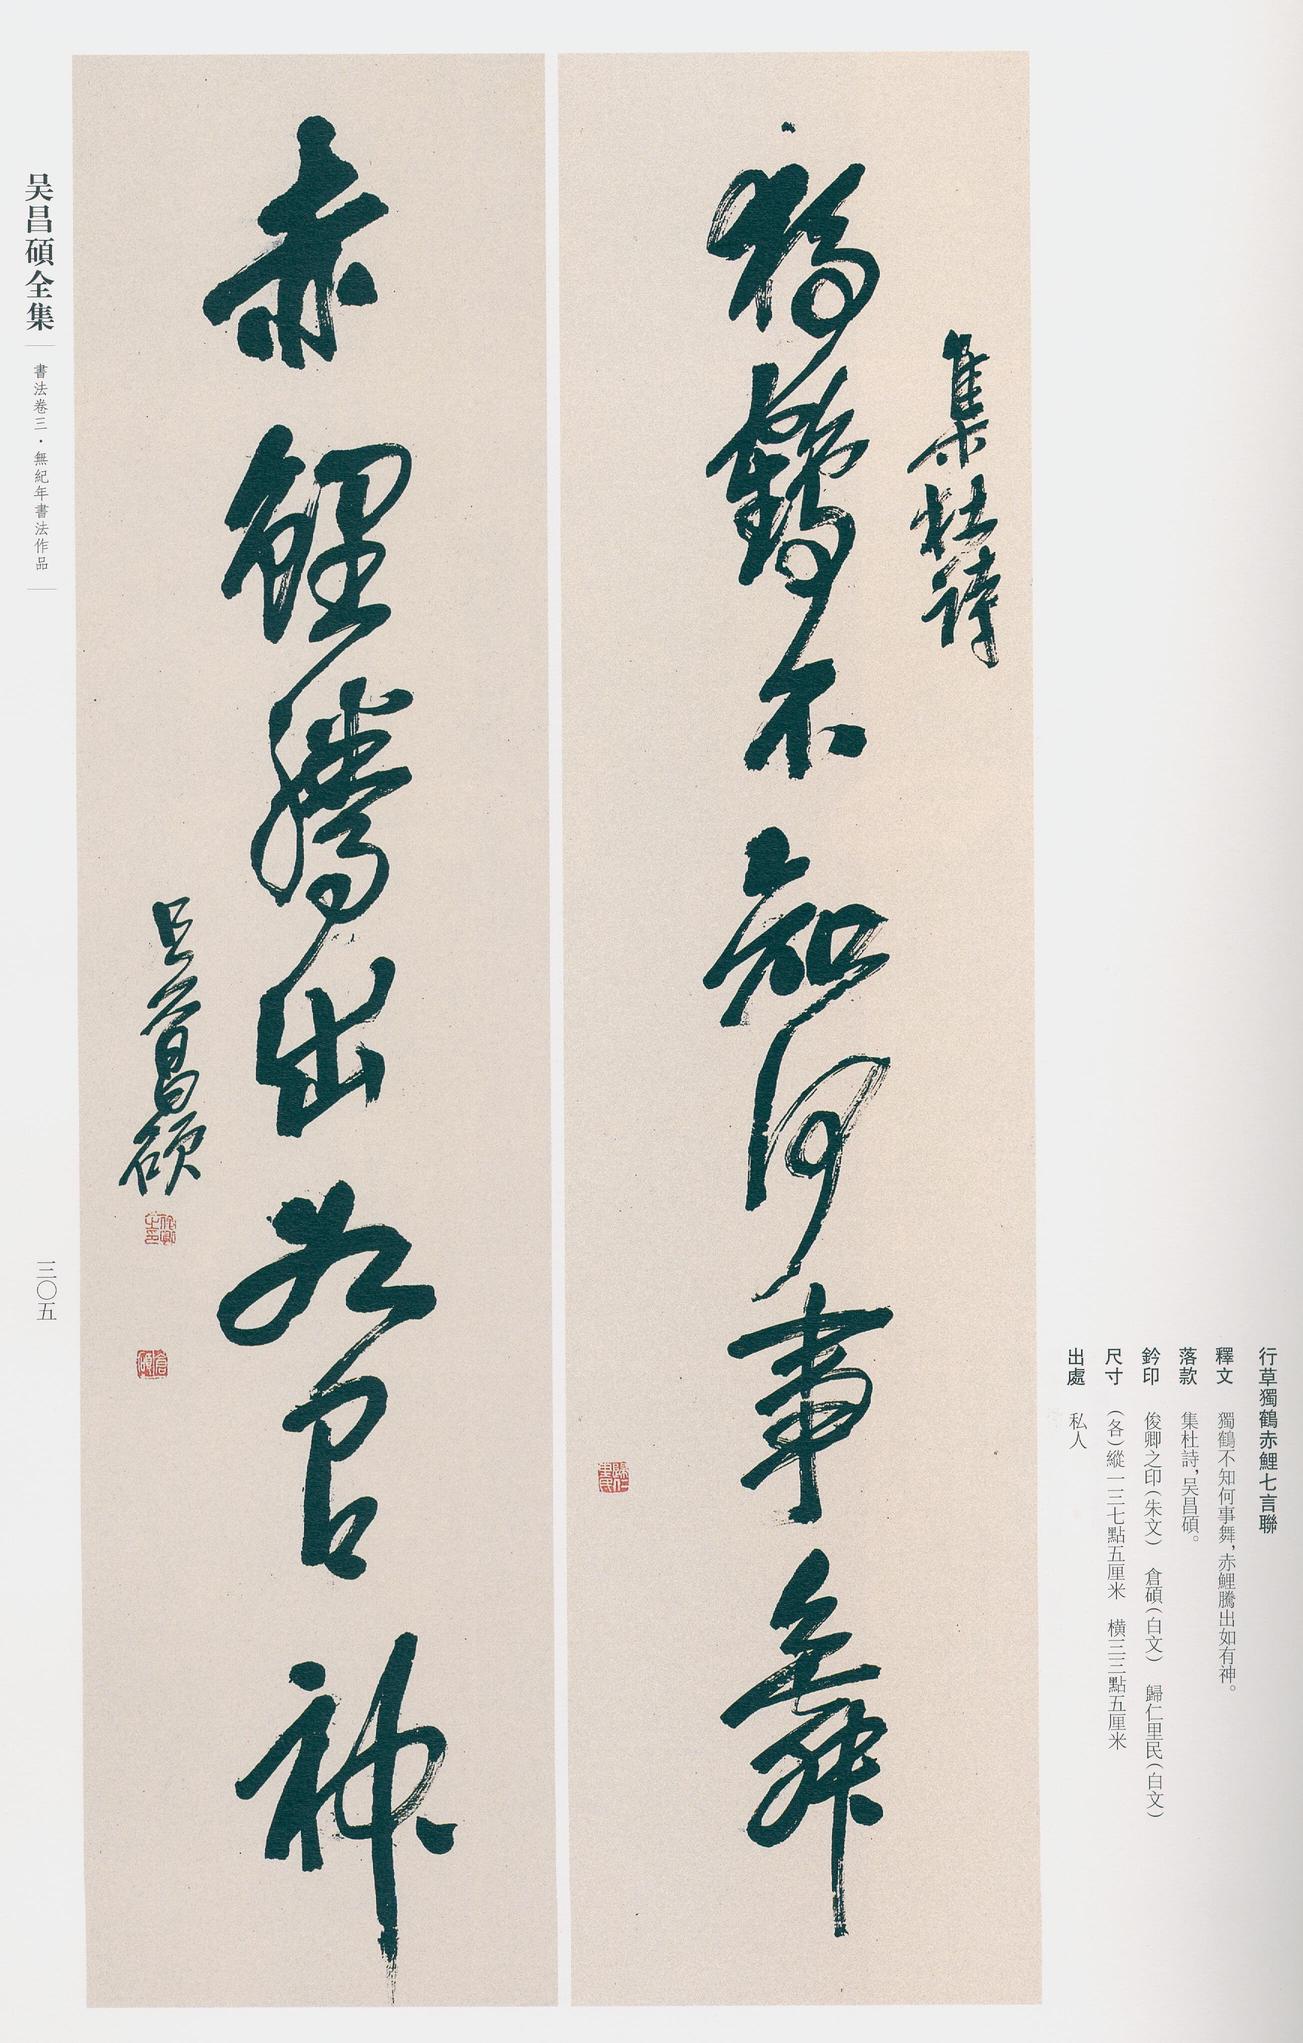 行草獨鶴赤鯉七言聯
釋文　獨鶴不知何事舞，赤鯉騰出如有神。
落款　集杜詩，吴昌碩。
鈐印　俊卿之印（朱文）　倉碩（白文）　歸仁里民（白文）
尺寸　（各）縱一三七點五厘米　橫三三點五厘米
出處　私人
集杜詩
獨鶴不知何事舞
赤鯉騰出如有神
吴昌碩
俊卿之印
倉碩
歸仁里民
吴昌碩全集
書法卷三·無紀年書法作品
三〇五